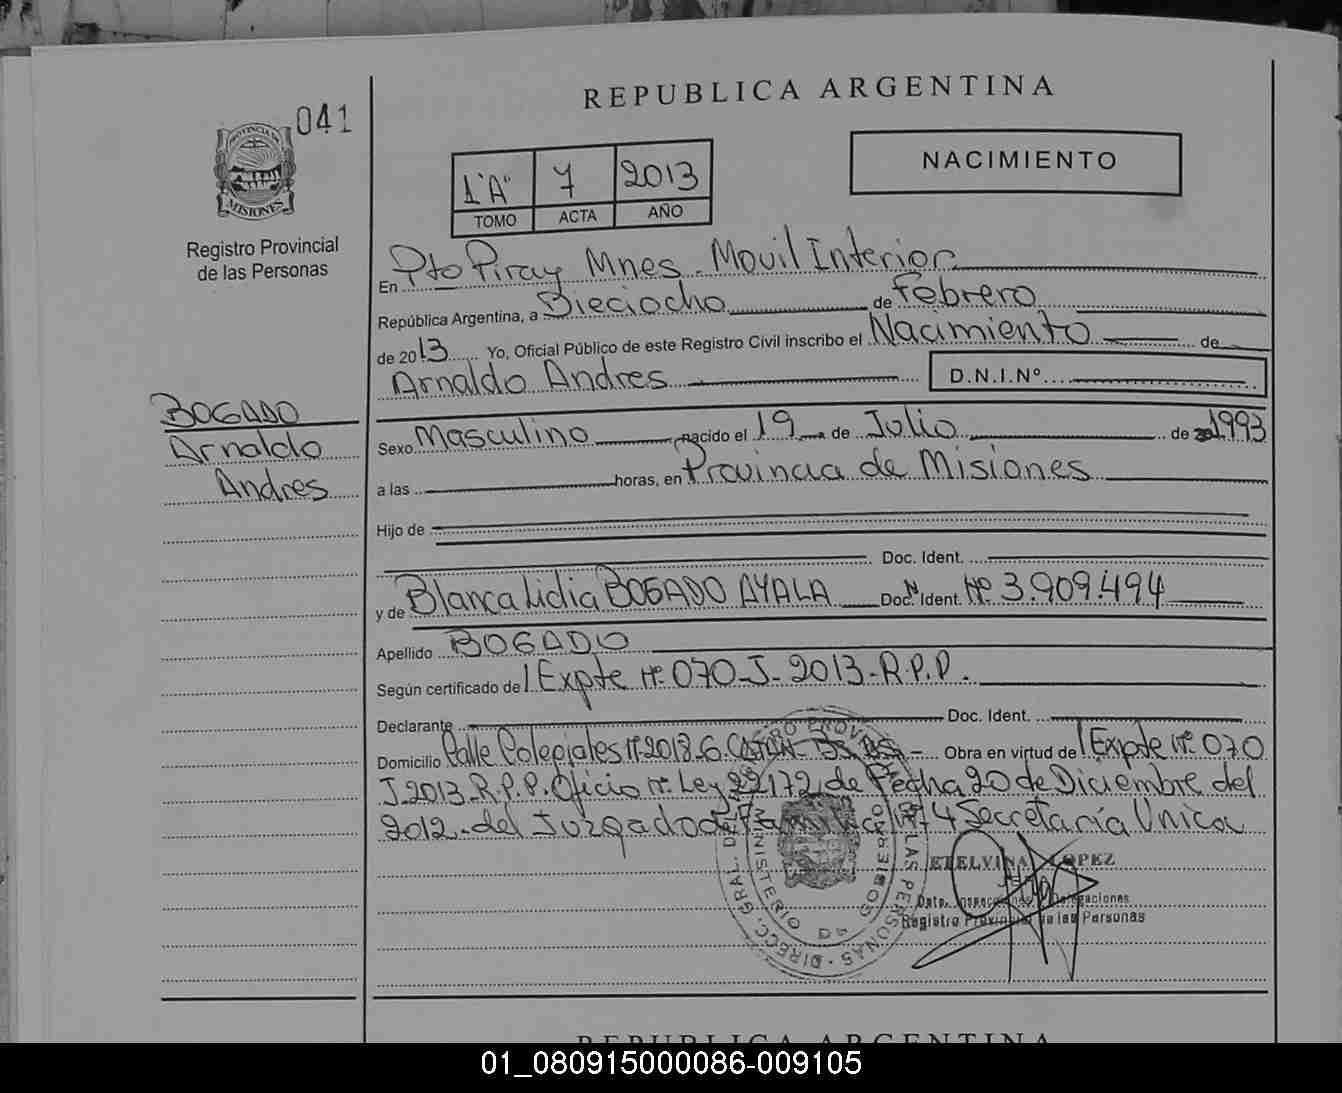 REPUBLICA ARGENTINA
041
PROVINCIA DE
MISIONES
Registro Provincial
de las Personas
1"A" 7 2013
TOMO ACTA AÑO
NACIMIENTO
En Pto Piray Mnes. Movil Interior
República Argentina, a Dieciocho de Febrero
de 2013 Yo, Oficial Público de este Registro Civil inscribo el Nacimiento de
Arnaldo Andres D.N.I.Nº
BOGADO
Arnaldo
Andres
Sexo Masculino nacido el 19 de Julio de 1993
a las horas, en Provincia de Misiones
Hijo de
Doc. Ident.
y de Blanca Lidia BOGADO AYALA Doc. Ident. Nº 3.909.494
Apellido BOGADO
Según certificado del Expte nº 070-J-2013-R.P.P.
Declarante Doc. Ident.
Domicilio Calle Colegiales nº 2018-G. Obra en virtud del Expte nº 070
J-2013-R.P.P. Oficio nº Ley 22172 de Fecha 20 de Diciembre del
2012-del Juzgado de Familia nº 4 Secretaría Unica
ETELVINA LOPEZ
Registro Provincial de las Personas
REPUBLICA ARGENTINA
01_080915000086-009105